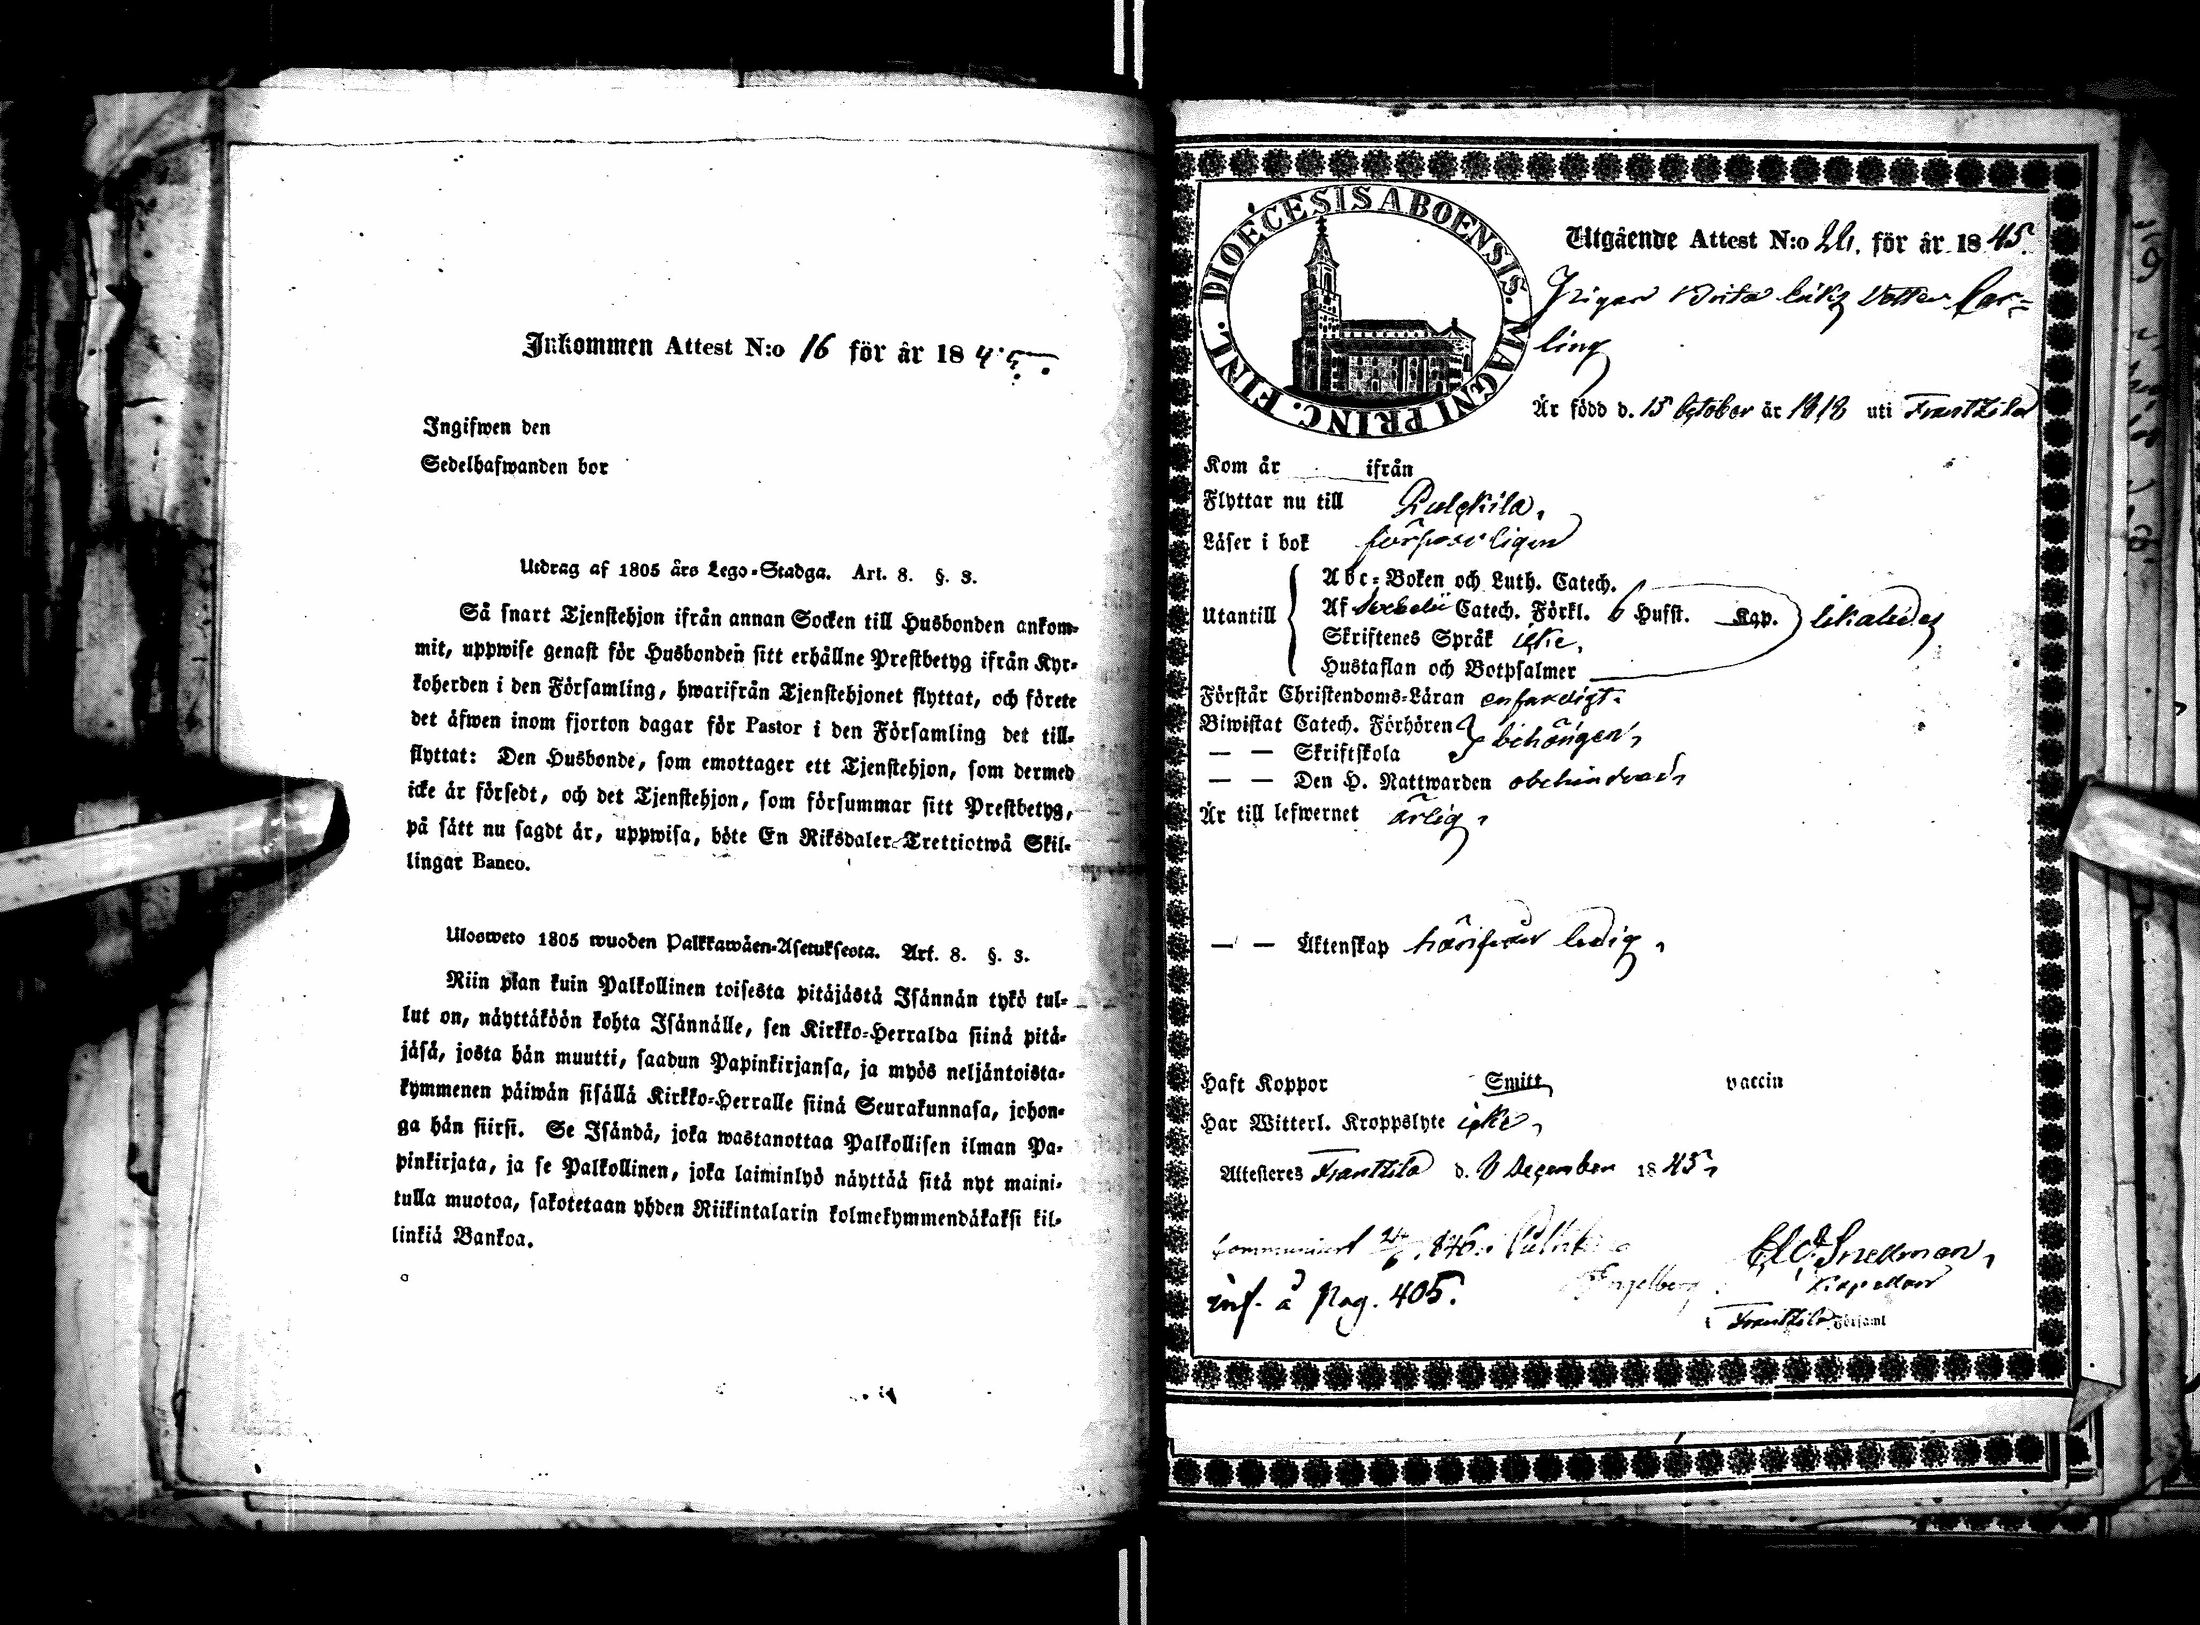 Inkommen Attest N:o 16 för år 1845.
Ingifwen den
Sedelhafwanden bor
Utdrag af 1805 års Lego-Stadga. Art. 8. §. 3.
Så snart Tjenstehjon ifrån annan Socken till Husbonden ankom-
mit, uppwise genast för Husbonden sitt erhållne Prestbetyg ifrån Kyr-
koherden i den Församling, hwarifrån Tjenstehjonet flyttat, och förete
det äfwen inom fjorton dagar för Pastor i den Församling det till-
flyttat: Den Husbonde, som emottager ett Tjenstehjon, som dermed
icke är försedt, och det Tjenstehjon, som försummar sitt Prestbetyg,
på sätt nu sagdt är, uppwisa, böte En Riksdaler Trettiotwå Skil-
lingar Banco.
Ulosweto 1805 wuoden Palkkawäen-Asetuksesta. Art. 8. §. 3.
Niin pian kuin Palkollinen toisesta pitäjästä Isännän tykö tul-
lut on, näyttäköön kohta Isännälle, sen Kirkko-Herralda siinä pitä-
jäsä, josta hän muutti, saadun Papinkirjansa, ja myös neljäntoista-
kymmenen päiwän sisällä Kirkko-Herralle siinä Seurakunnasa, johon-
ga hän siirsi. Se Isändä, joka wastanottaa Palkollisen ilman Pa-
pinkirjata, ja se Palkollinen, joka laiminlyö näyttää sitä nyt maini-
tulla muotoa, sakotetaan yhden Riikintalarin kolmekymmendäkaksi kil-
linkiä Bankoa.
DIOECESIS ABOENSIS. MAGNI PRINC. FINL.
Utgående Attest N:o för år 1845.
Pigan Brita Eriks Dotter Car-
ling
Är född d. 15 October år 1818 uti Frantzila
Kom år ifrån
Flyttar nu till Pulckila,
Läser i bok försvarligen
Abc-Boken och Luth. Catech.
Utantill Af Svebelii Catech. Förkl. 6 Hufst. Kap. likaledes
Skriftenes Språk icke,
Hustaflan och Botpsalmer
Förstår Christendoms-Läran enfaldigt.
Biwistat Catech. Förhören
— — Skriftskola behörigen,
— — Den H. Nattwarden obehindrad,
Är till lefwernet ärlig,
— — Äktenskap härifrån ledig,
Haft Koppor Smitt vaccin
Har Witterl. Kroppslyte icke,
Attesteres Frantzila d. December 1845,
Communicerat 1846. Pulkila
inf. å Pag. 405.
Snellman,
Kapellan
i Frantzila Församl